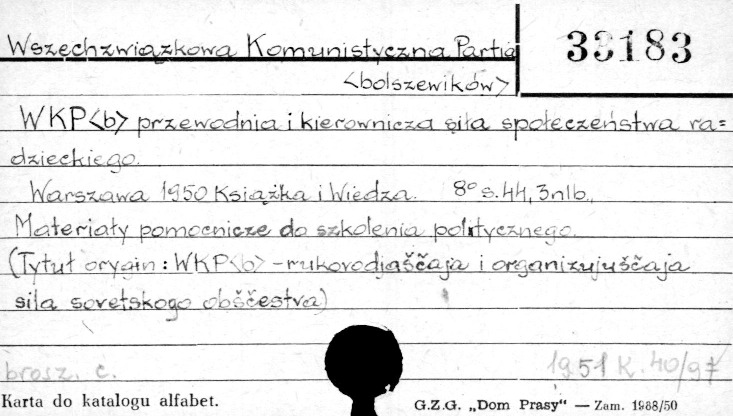 Wszechzwiązkowa Komunistyczna Partia 33183
<bolszewików>
WKP<b> przewodnia i kierownicza siła społeczeństwa ra=
dzieckiego.
Warszawa 1950 Książka i Wiedza. 8° s. 44, 3 nlb.,
Materiały pomocnicze do szkolenia politycznego.
(Tytuł orygin: WKP<b> - rukovodjaščaja i organizujuščaja
sila sovetskogo obščestva)
brosz. c. 1951 K. 40/97
Karta do katalogu alfabet. G.Z.G. „Dom Prasy“ — Zam. 1988/50